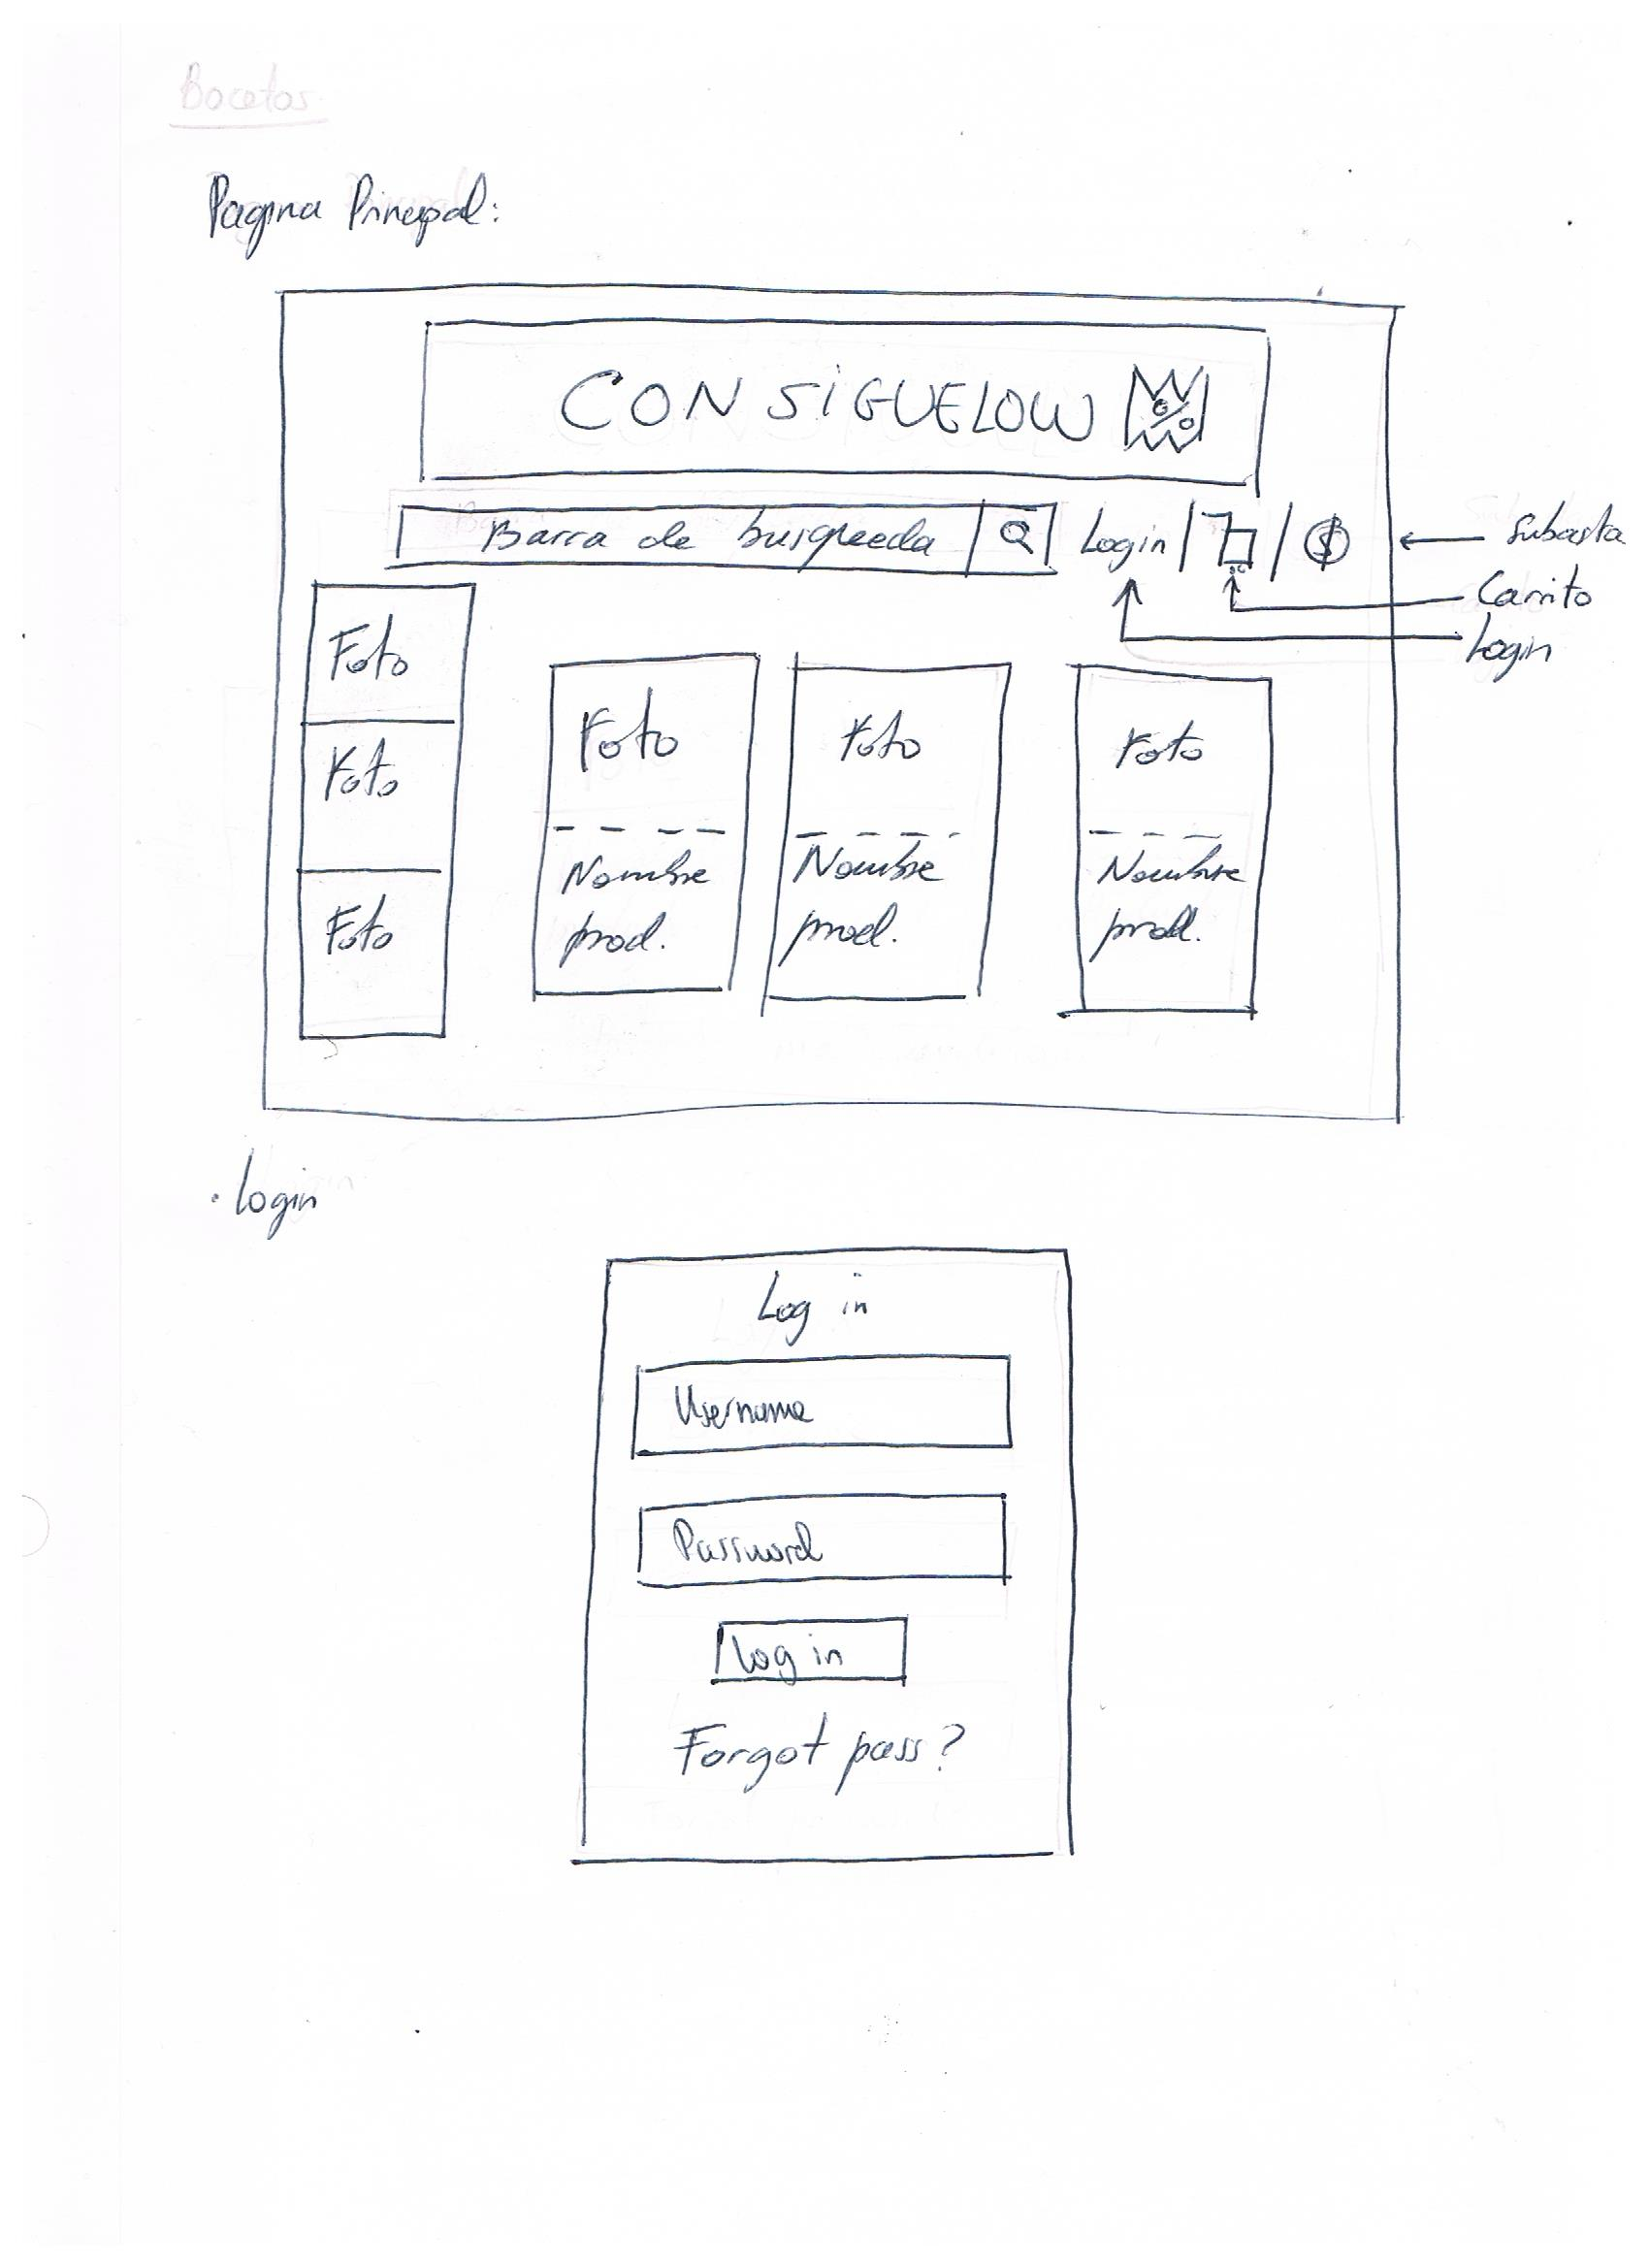 Bocetos
Pagina Principal:
CONSiGUELOW
Barra de busqueeda
Login
subasta
Carrito
Login
Foto
Foto
Foto
Foto
Nombre
prod.
Foto
Nombre
prod.
Foto
Nombre
prod.
. login
Log in
Username
Password
log in
Forgot pass?